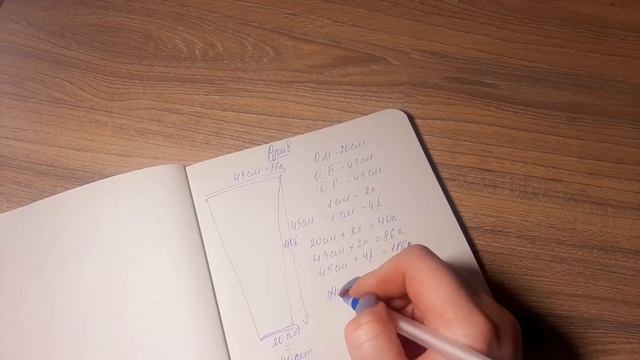 Рукав
43см = 86п.
ОМ - 20см
ОБ - 43см.
ДР - 45см
1см - 2п
1см - 4р.
45см
20см × 2п = 40п.
43см × 2п = 86п.
45см × 4р. = 180р.
20см
=
40пет.